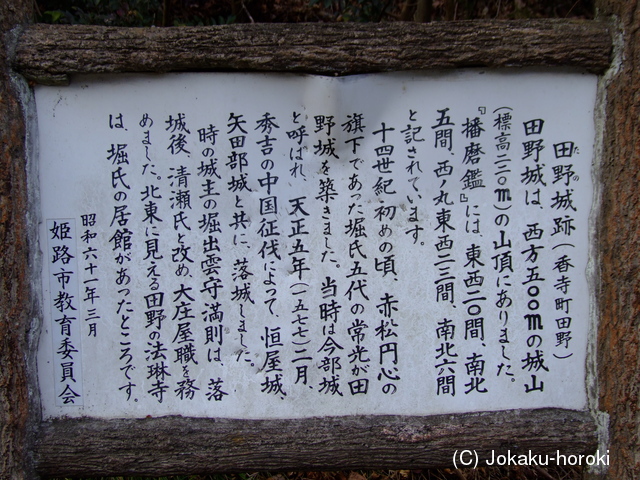 田野城跡（香寺町田野）
たの
田野城は、西方五〇〇mの城山
（標高二二〇m）の山頂にありました。
『播磨鑑』には、東西二〇間、南北
五間、西ノ丸東西二三間、南北六間
と記されています。
十四世紀初めの頃、赤松円心の
旗下であった堀氏五代の常光が田
野城を築きました。当時は今部城
と呼ばれ、天正五年（一五七七）二月、
秀吉の中国征伐によって、恒屋城、
矢田部城と共に、落城しました。
時の城主の堀出雲守満則は、落
城後、清瀬氏と改め、大庄屋職を務
めました。北東に見える田野の法琳寺
は、堀氏の居館があったところです。
昭和六十一年三月
姫路市教育委員会
(C) Jokaku-horoki